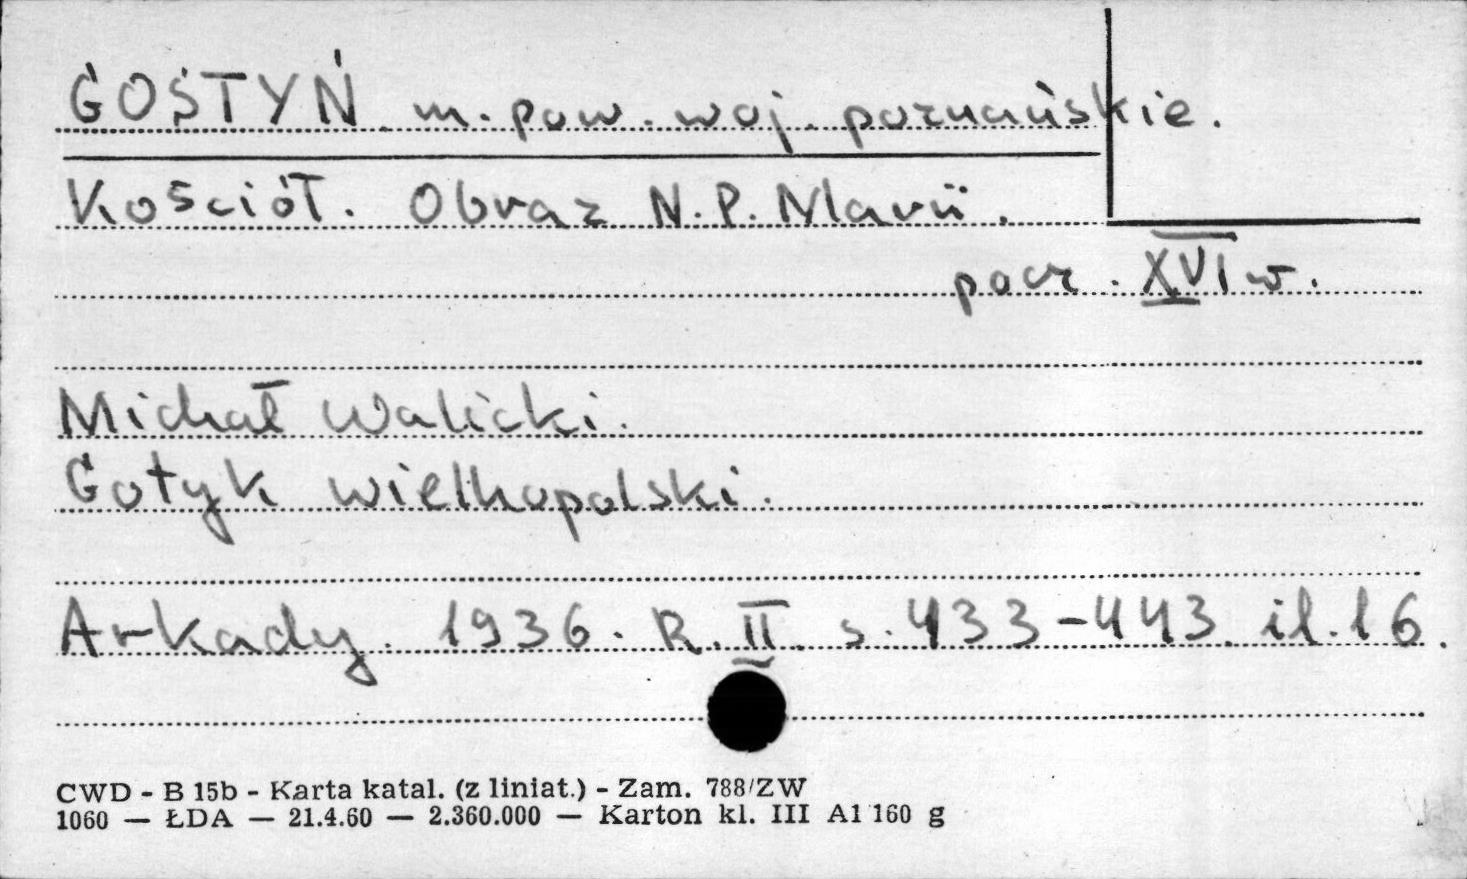 GOSTYŃ m. pow. woj. poznańskie.
Kościół. Obraz N.P. Marii.
pocz. XVI w.
Michał Walicki.
Gotyk wielkopolski.
Arkady. 1936. R. II. s. 433-443. il. 16.
CWD - B 15b - Karta katal. (z liniat.) - Zam. 788/ZW
1060 — ŁDA — 21.4.60 — 2.360.000 — Karton kl. III A1 160 g